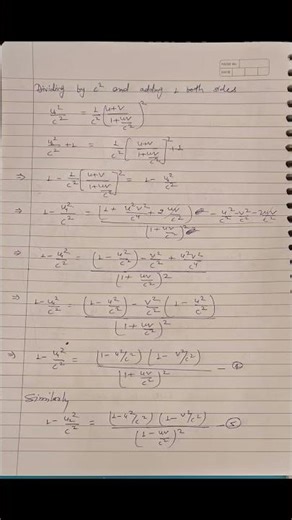 PAGE NO.
DATE
Dividing by c² and adding 1 both sides
u²/c² = 1/c² [ (u+v) / (1+uv/c²) ]²
u²/c² + 1 = 1/c² [ (u+v) / (1+uv/c²) ]² + 1
⇒ 1 - 1/c² [ (u+v) / (1+uv/c²) ]² = 1 - u²/c²
⇒ 1 - u²/c² = ( (1 + u²v²/c⁴ + 2uv/c²) - u²/c² - v²/c² - 2uv/c² ) / (1+uv/c²)²
⇒ 1 - u²/c² = ( (1 - u²/c²) - v²/c² + u²v²/c⁴ ) / (1 + uv/c²)²
⇒ 1 - u²/c² = ( (1 - u²/c²) - v²/c² (1 - u²/c²) ) / (1 + uv/c²)²
⇒ 1 - u²/c² = (1-u²/c²) (1-v²/c²) / (1 + uv/c²)²
Similarly
1 - u²/c² = (1-u²/c²) (1-v²/c²) / (1 - uv/c²)² — ⑤